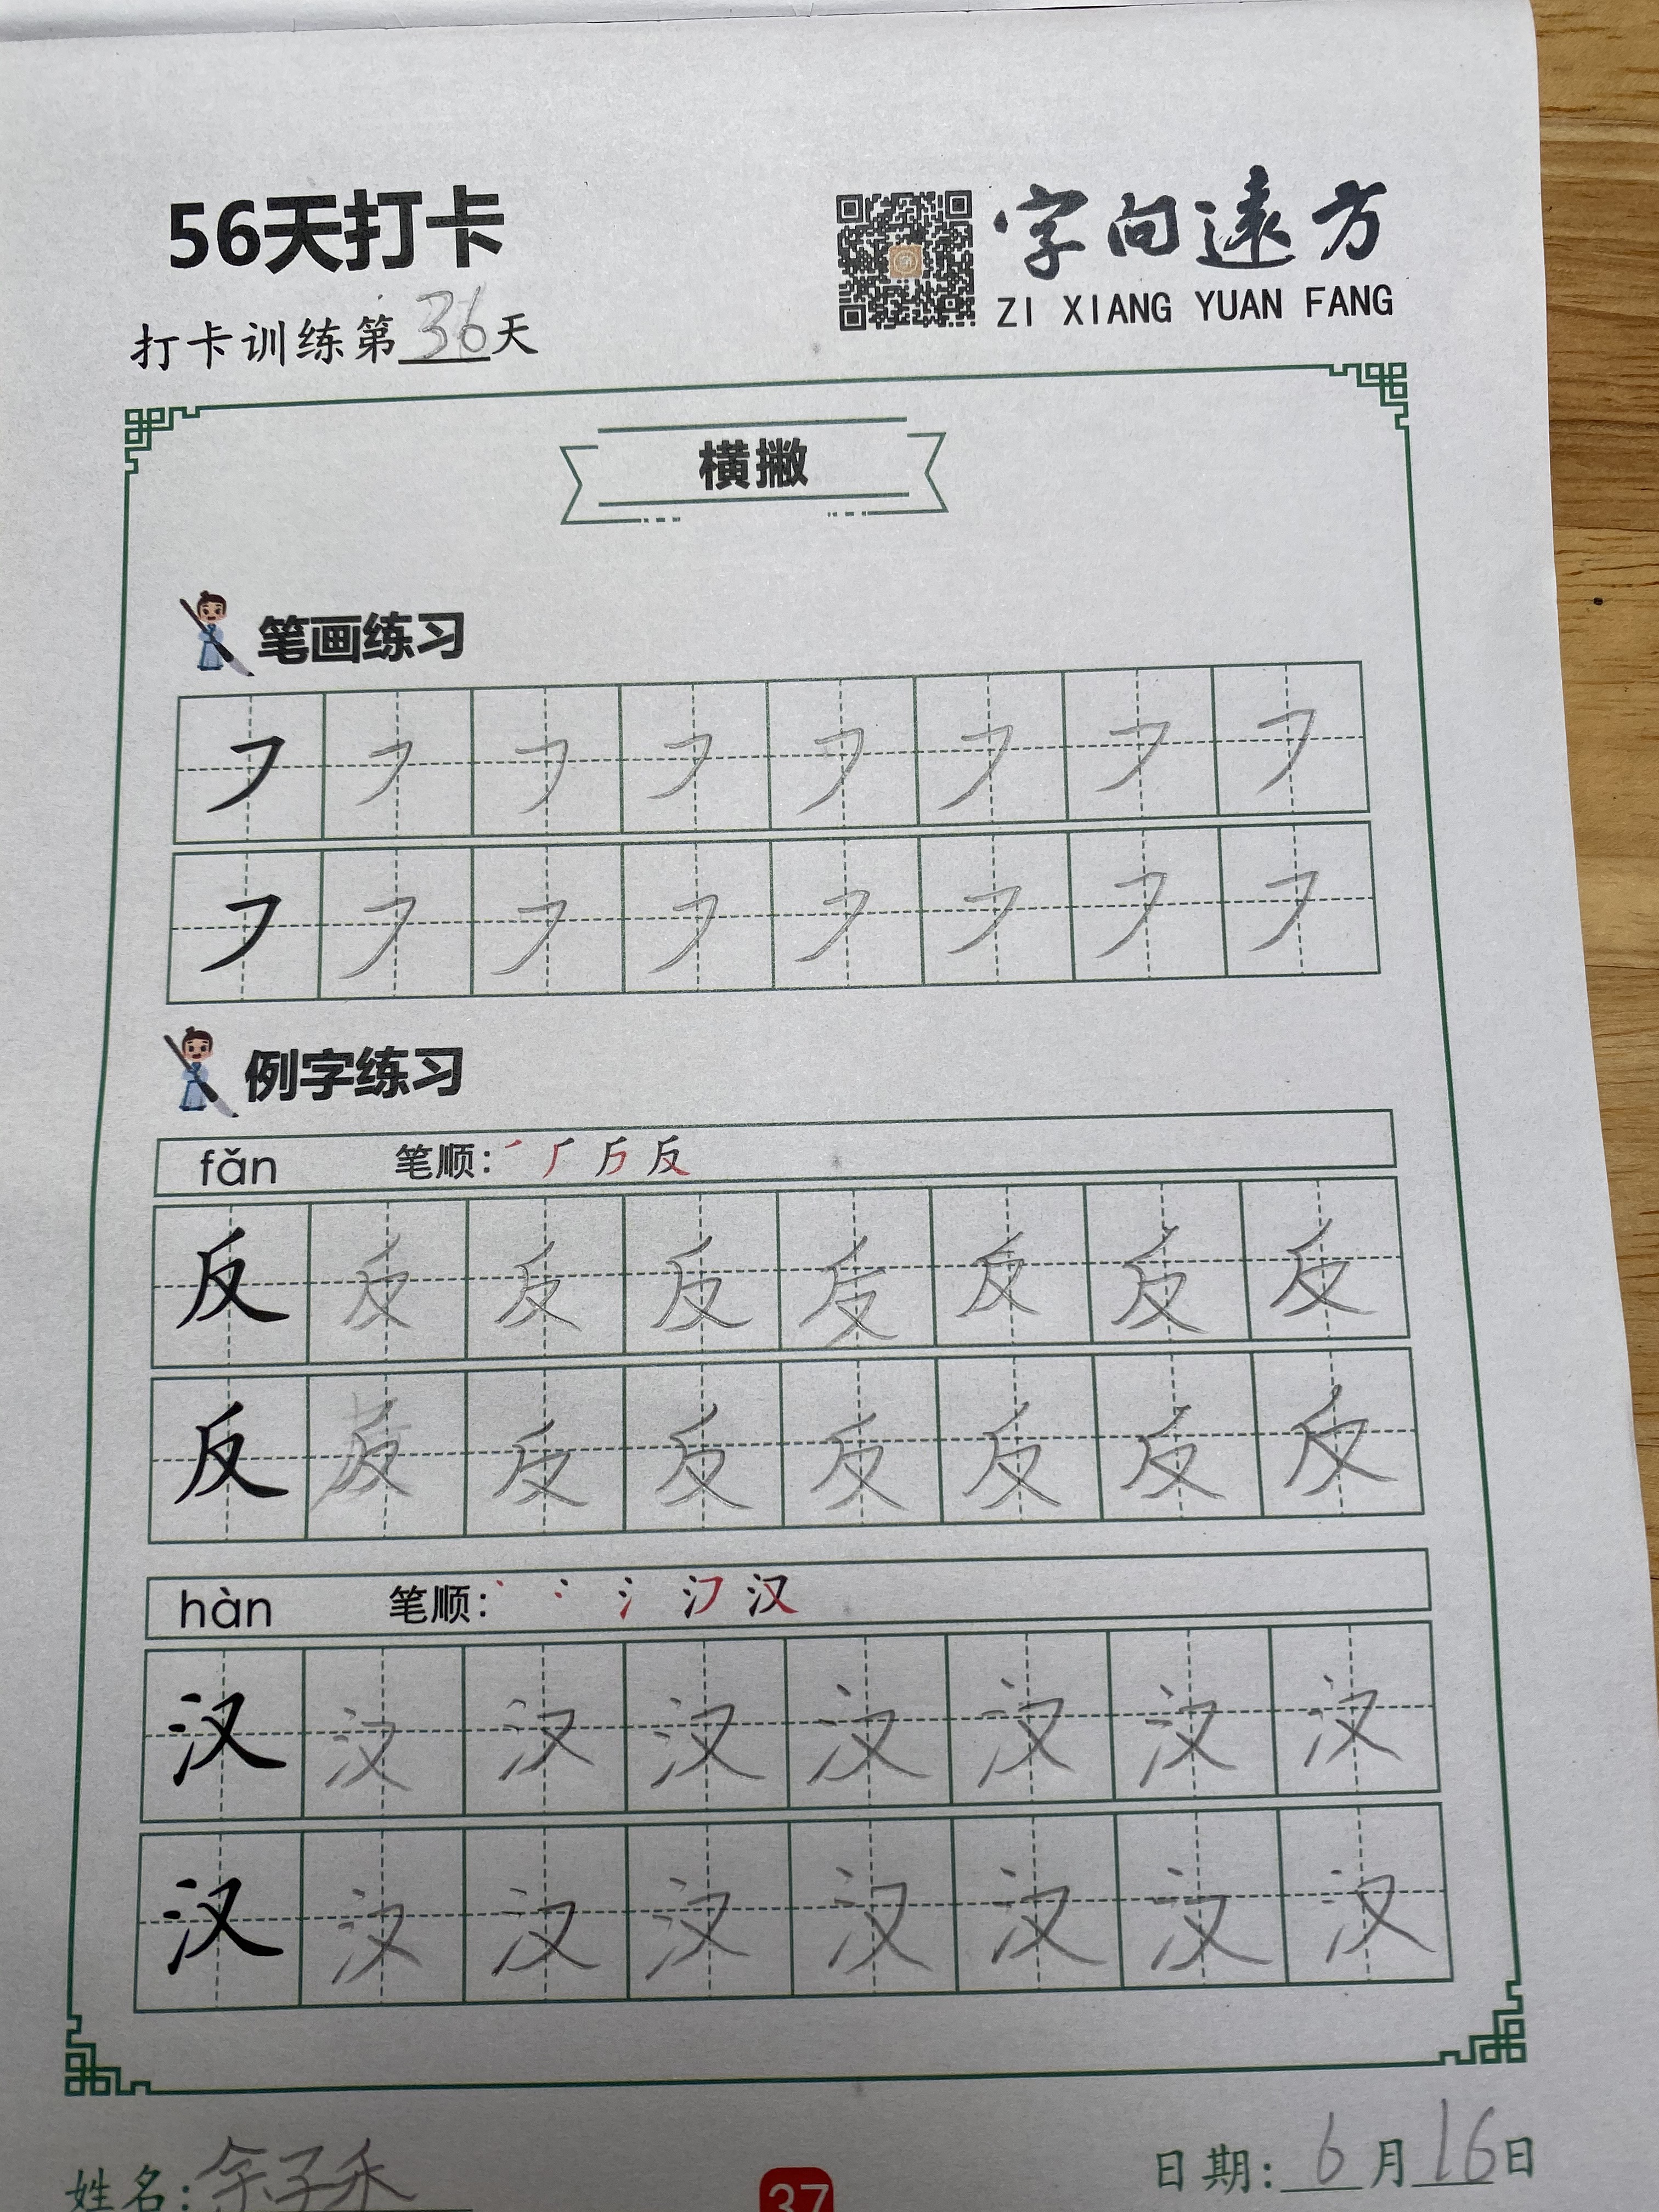 56天打卡
字向遠方
ZI XIANG YUAN FANG
打卡训练第36天
横撇
笔画练习
㇇ ㇇ ㇇ ㇇ ㇇ ㇇ ㇇ ㇇
㇇ ㇇ ㇇ ㇇ ㇇ ㇇ ㇇ ㇇
例字练习
fǎn 笔顺: 反
反 反 反 反 反 反 反 反
反 反 反 反 反 反 反 反
hàn 笔顺: 汉
汉 汉 汉 汉 汉 汉 汉 汉
汉 汉 汉 汉 汉 汉 汉 汉
姓名: 余子禾
37
日期: 6月16日